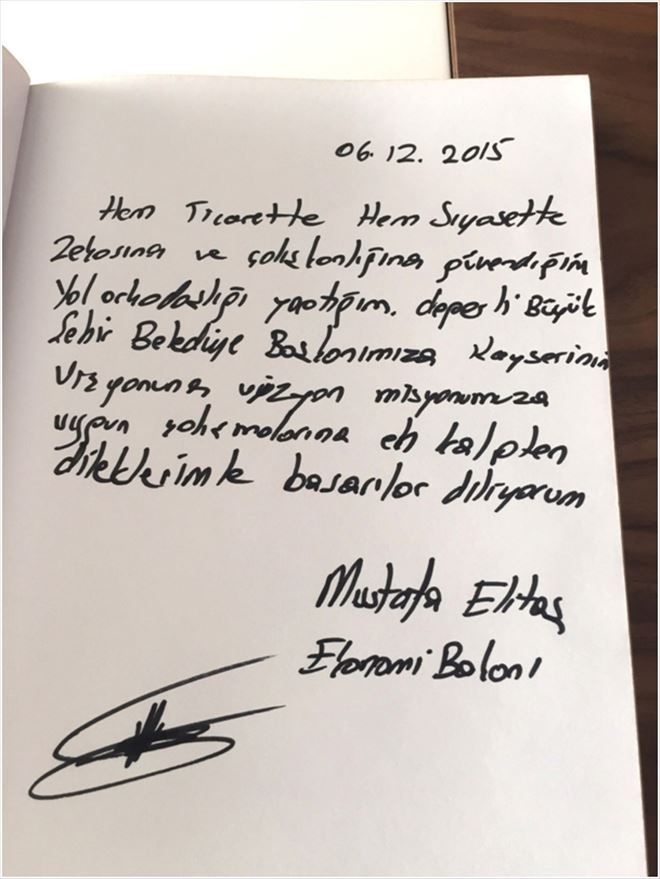 06.12.2015
Hem Ticarette Hem Siyasette
Zekasına ve çalışkanlığına güvendiğim
Yol arkadaşlığı yaptığım. değerli Büyük
Şehir Belediye Başkanımıza Kayserinin
Vizyonuna vizyon misyonumuza
uygun çalışmalarına en kalpten
dileklerimle başarılar diliyorum
Mustafa Elitaş
Ekonomi Bakanı